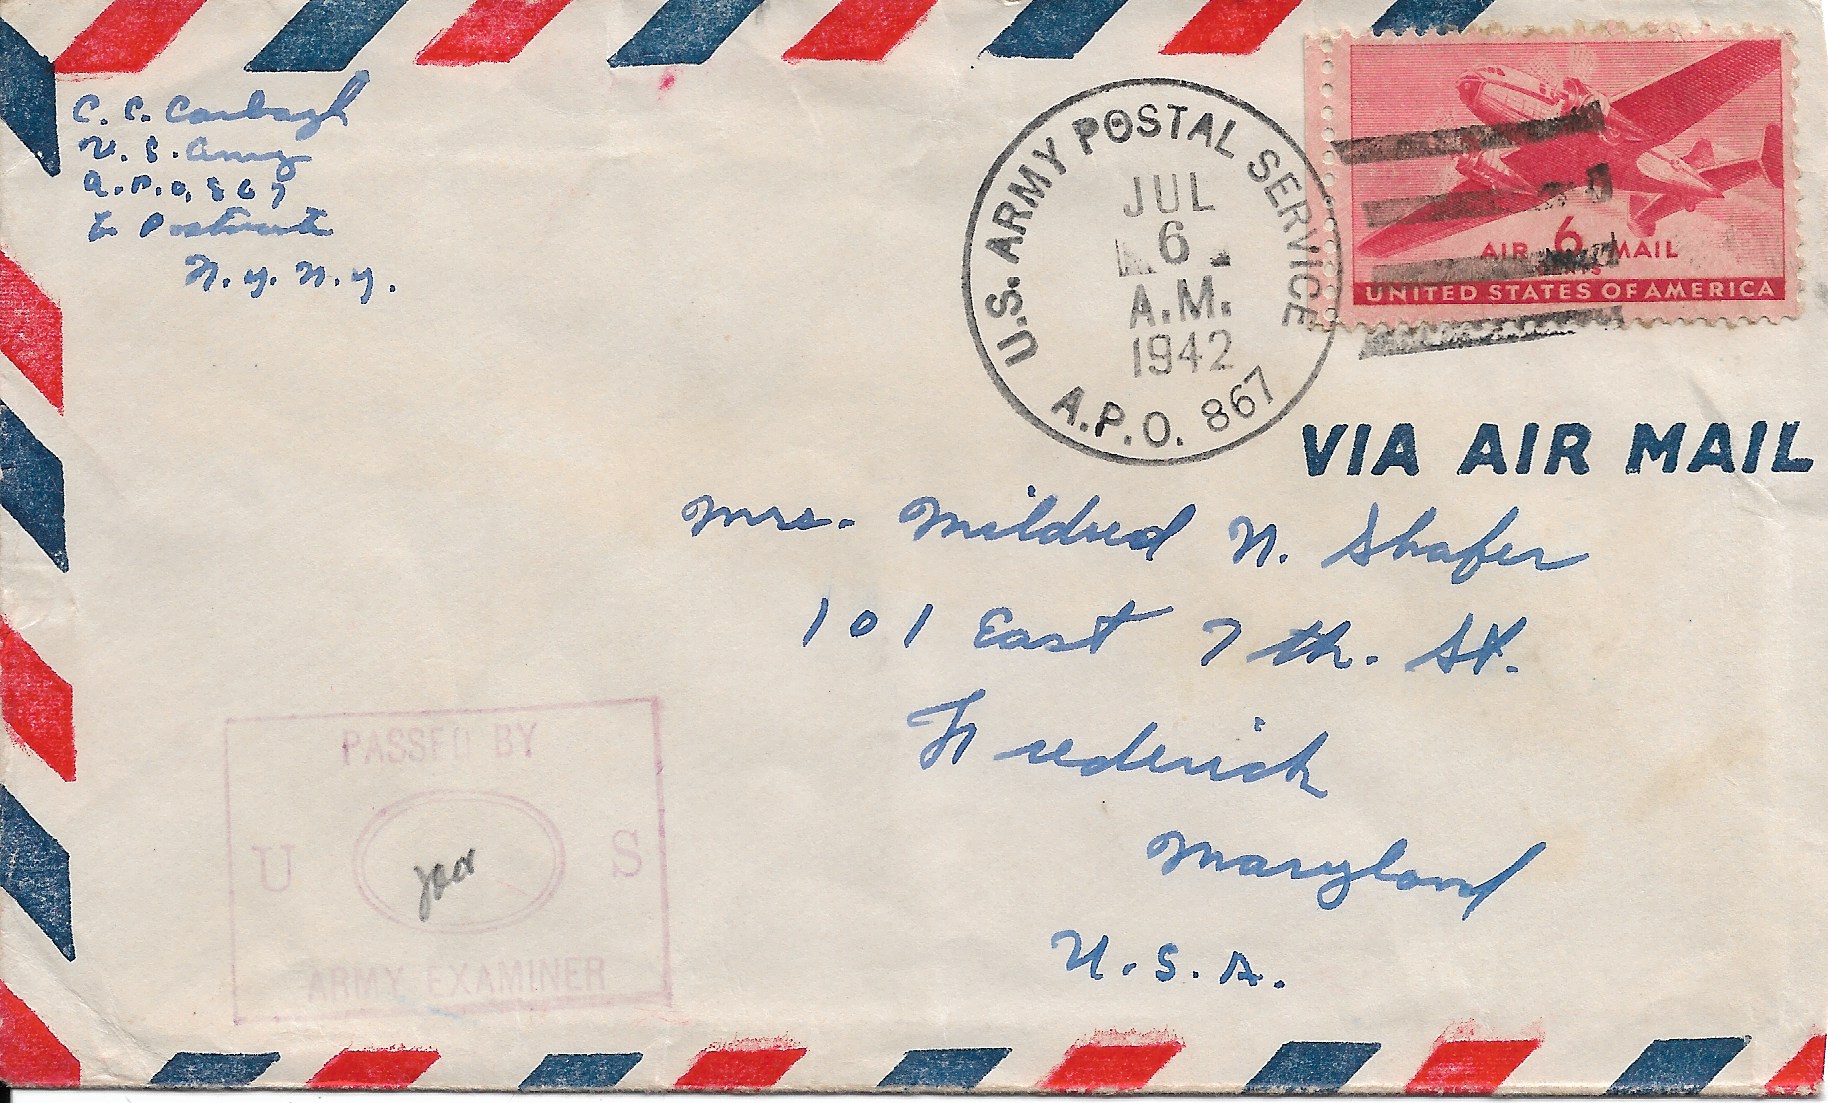 C. C. Carbagh
U. S. Army
A.P.O. 867
℅ Postmaster
N.Y. N.Y.
U.S. ARMY POSTAL SERVICE
JUL
6
A.M.
1942
A.P.O. 867
AIR 6 MAIL
CENTS
UNITED STATES OF AMERICA
VIA AIR MAIL
Mrs. Mildred N. Shafer
101 East 7th. St.
Frederick
Maryland
U.S.A.
PASSED BY
U S
ARMY EXAMINER